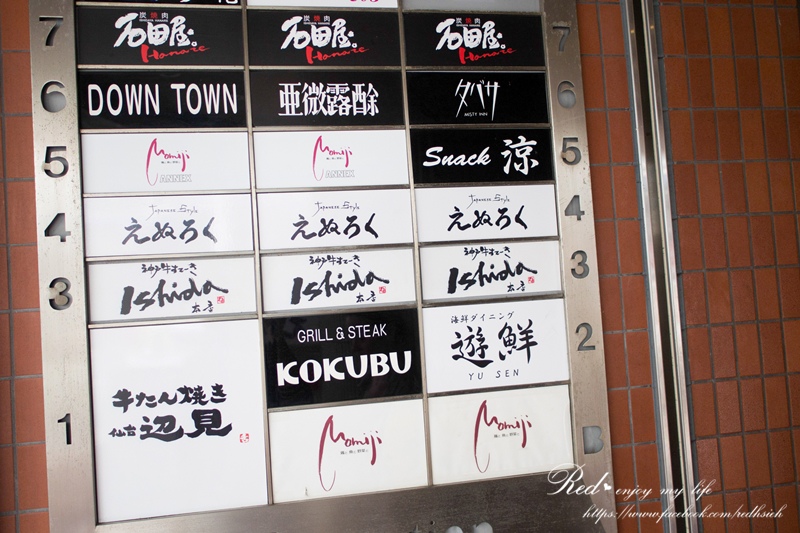 7
炭焼肉
石田屋。
Hanare
炭焼肉
石田屋。
Hanare
炭焼肉
石田屋。
Hanare
7
6
DOWN TOWN
亜微露酴
タバサ
MISTY INN
6
5
Momiji
ANNEX
Momiji
ANNEX
Snack 涼
5
4
Japanese Style
えぬろく
Japanese Style
えぬろく
Japanese Style
えぬろく
4
3
神戸牛すてーき
Ishida
神戸牛すてーき
Ishida
神戸牛すてーき
Ishida
3
1
牛たん焼き
仙台 辺見
GRILL & STEAK
KOKUBU
海鮮ダイニング
遊鮮
YU SEN
2
Momiji
Momiji
Red enjoy my life
https://www.facebook.com/redhsieh